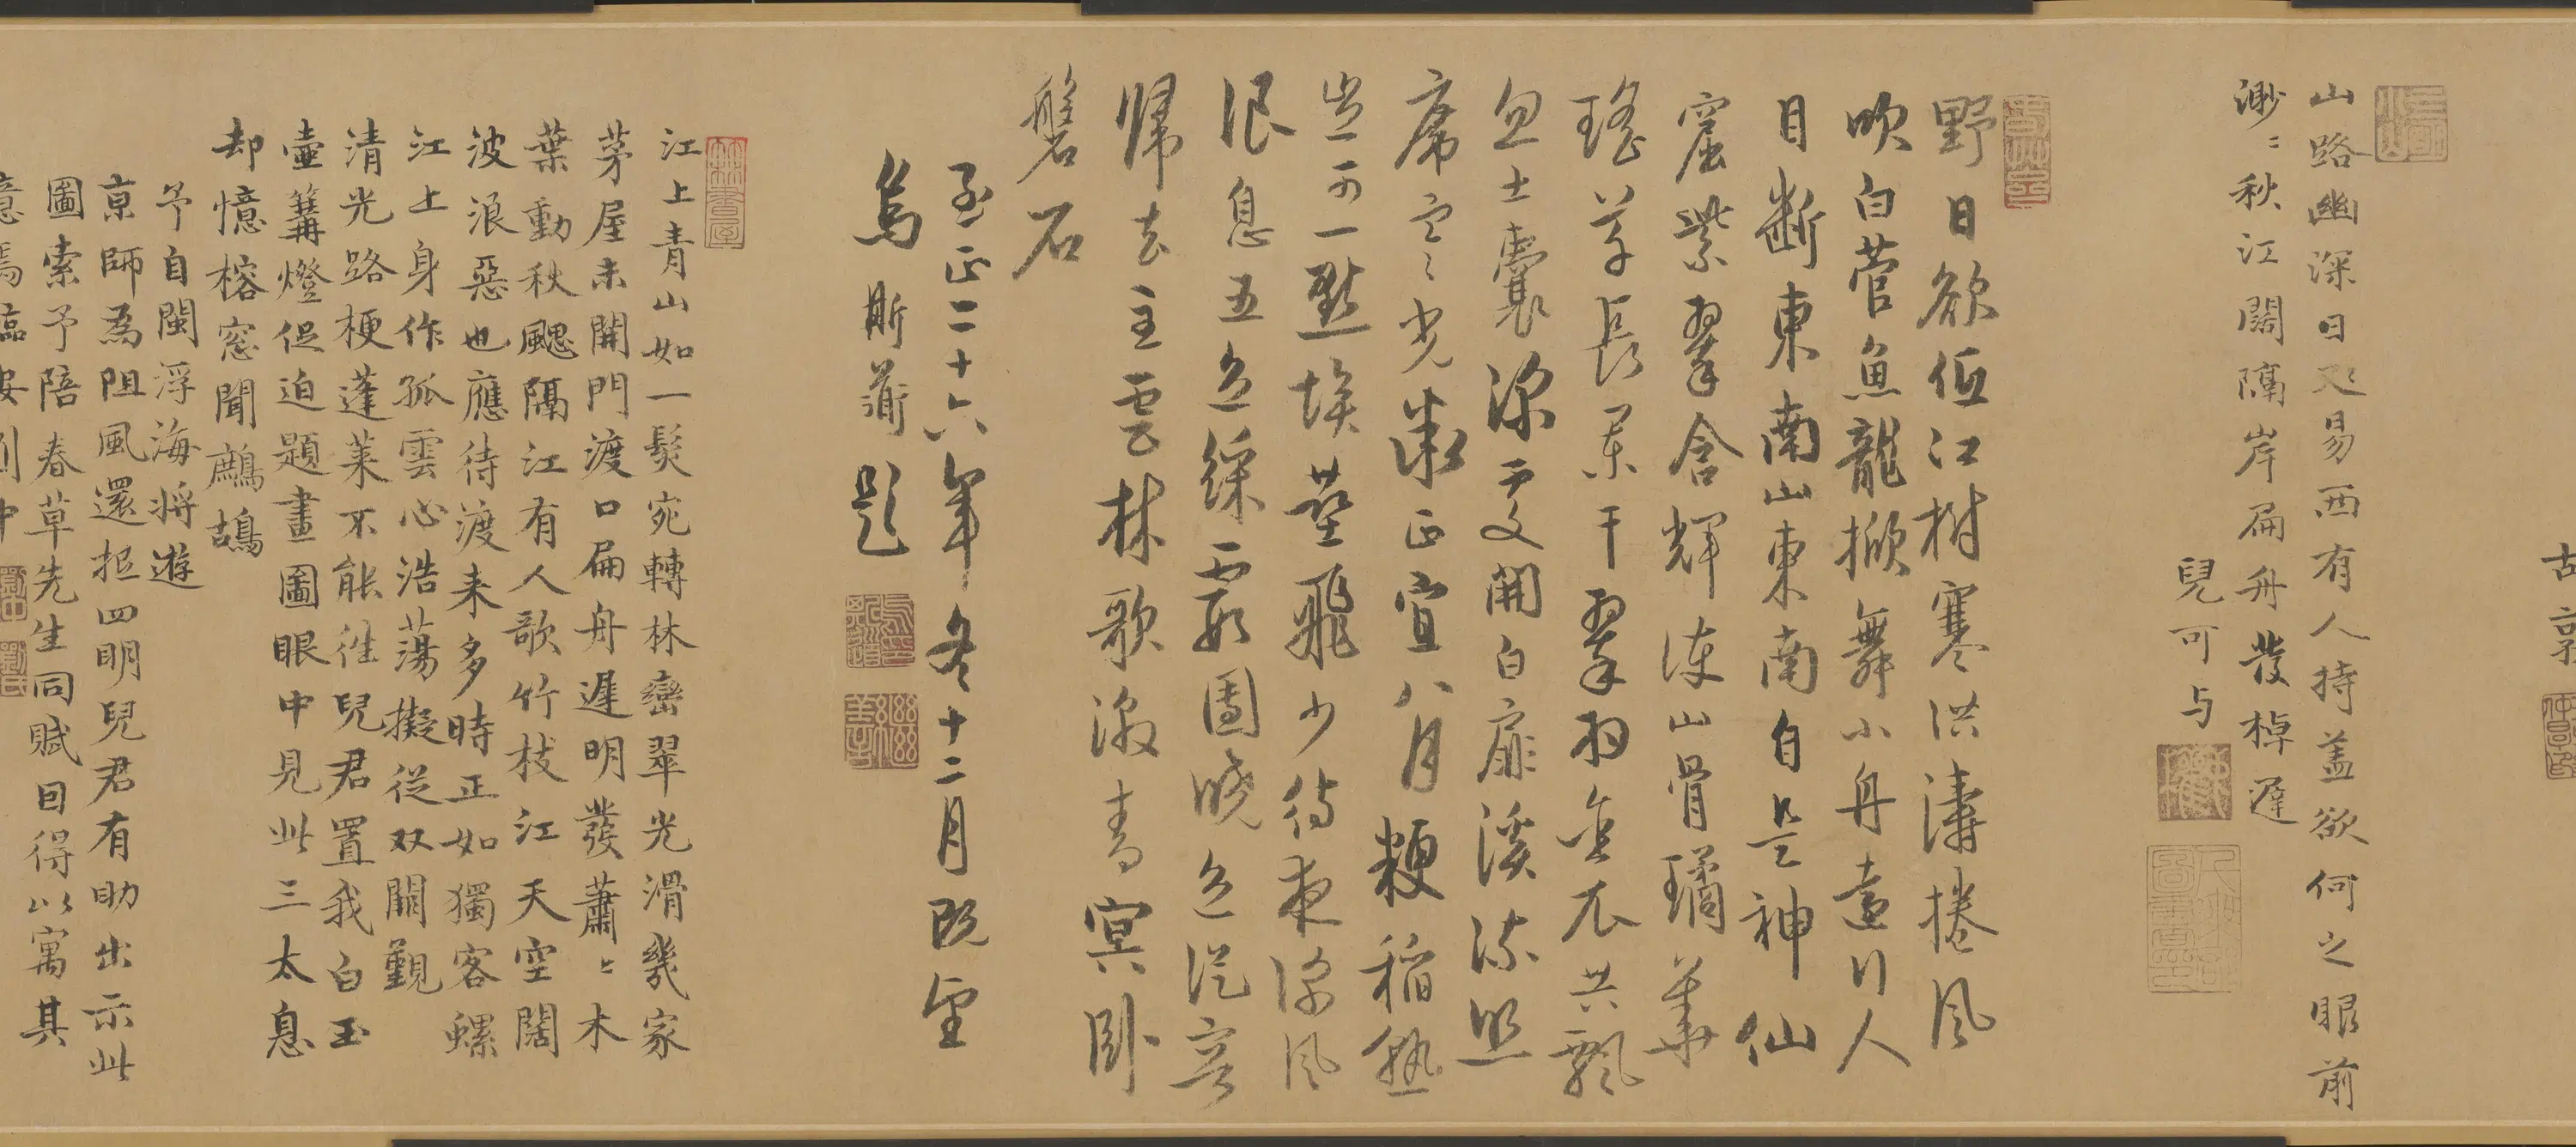 古
山路幽深日又易西有人持盖欲何之眼前
渺〻秋江闊隔岸扁舟發棹遲
兒可与
野日欲低江樹寒洪濤捲風
吹白菅魚龍掀舞小舟遠行人
目斷東南山東南自是神仙
窟紫翠含輝凍山骨璚華
瑤草長蘭干翠羽金衣共飄
忽土囊深雲開白扉溪流照
席寒光激正宜八月粳稻熟
豈可一點埃壒飛少待東深風
浪息五色綵霞圍曉色從容
歸去主雲林歌激青冥卧
磐石
至正二十六年冬十二月既望
烏斯道題
江上青山如一髮宛轉林巒翠光滑幾家
茅屋未開門渡口扁舟遲明發蕭〻木
葉動秋颸隔江有人歌竹枝江天空闊
波浪惡也應待渡来多時正如獨客螺
江上身作孤雲心浩蕩擬從双闕觀
清光路梗蓬萊不能往兒君置我白玉
壺篝燈促迫題畫圖眼中見此三太息
却憶榕窓聞鷓鴣
予自閩浮海將遊
京師為阻風還抵四明兒君有助出示此
圖索予陪春草先生同賦因得以寓其